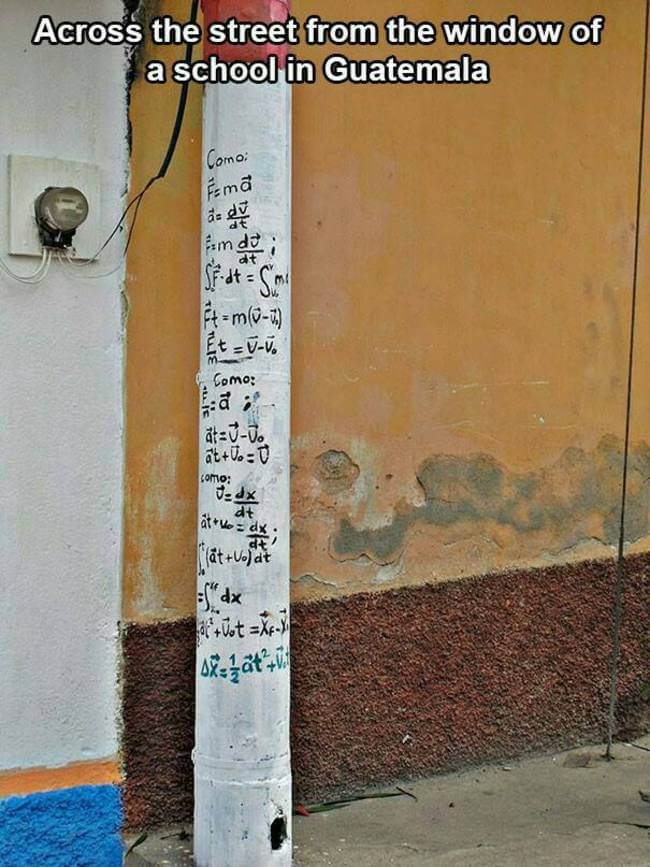 Across the street from the window of
a school in Guatemala
Como:
F⃗=ma⃗
a⃗=dv⃗/dt
F⃗=m dv⃗/dt ;
∫F⃗·dt=∫m
F⃗t=m(v⃗-v⃗₀)
F⃗/m t=v⃗-v⃗₀
Como:
F⃗/m=a⃗
a⃗t=v⃗-v⃗₀
a⃗t+v⃗₀=v⃗
como:
v⃗=dx/dt
a⃗t+v₀=dx/dt ;
∫(a⃗t+v₀)dt
=∫dx
+v⃗₀t=x⃗f-x⃗
Δx⃗=1/2 a⃗t²+v⃗.t